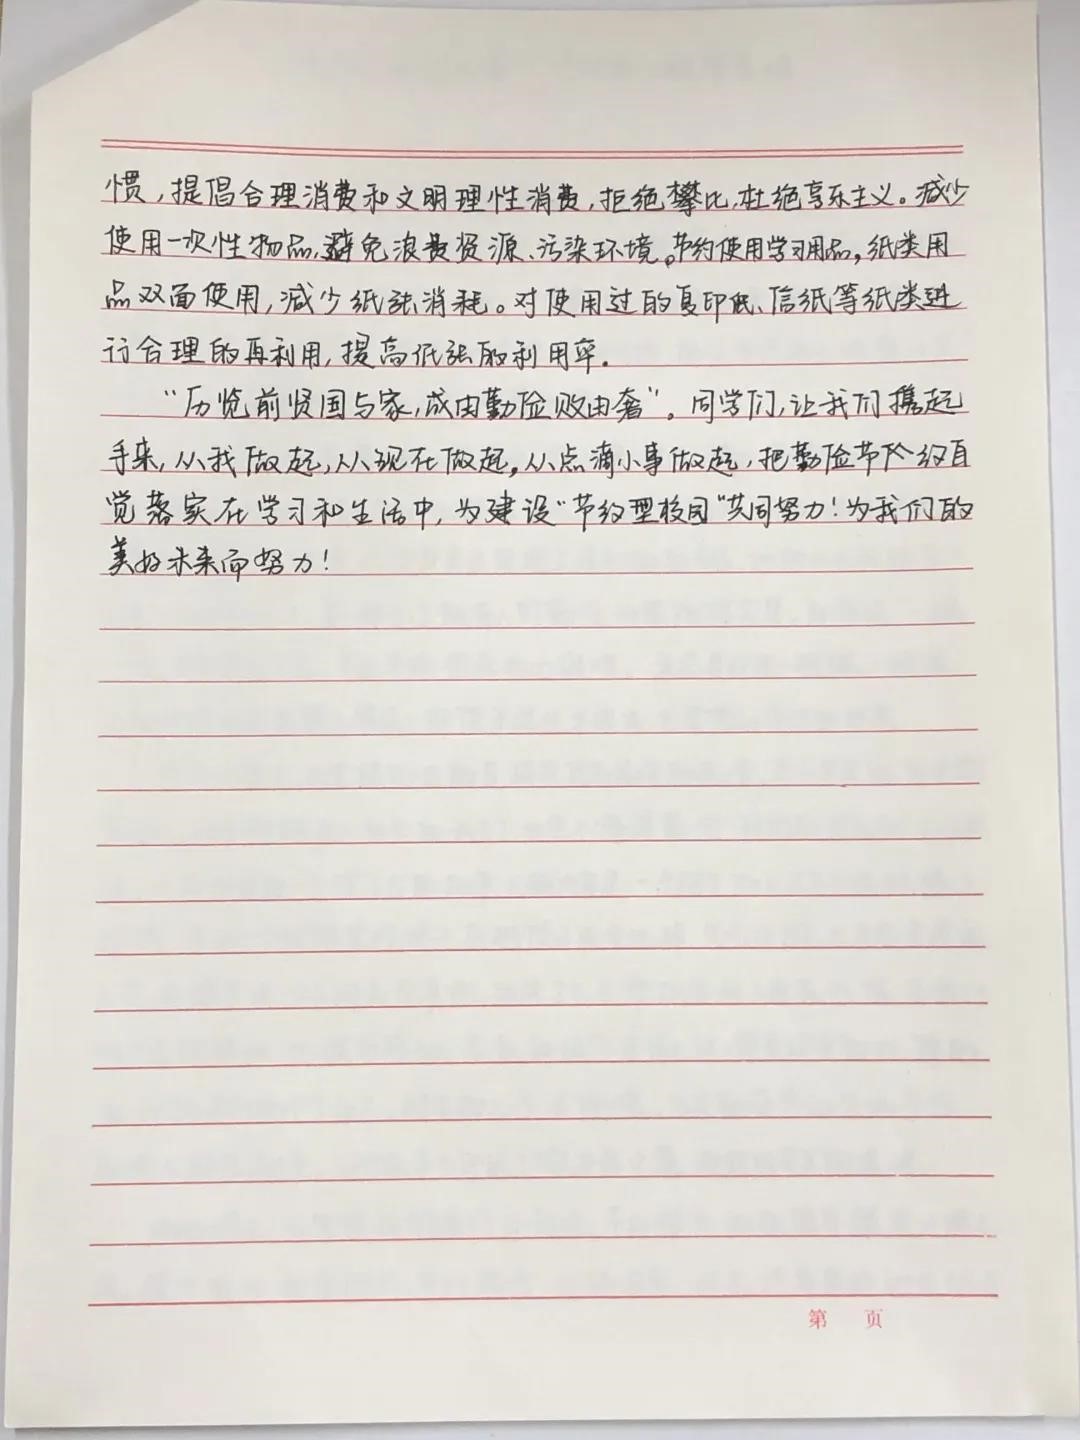 惯，提倡合理消费和文明理性消费，拒绝攀比，杜绝享乐主义。减少
使用一次性物品，避免浪费资源、污染环境。节约使用学习用品，纸类用
品双面使用，减少纸张消耗。对使用过的复印纸、信纸等纸类进
行合理的再利用，提高纸张的利用率。
“历览前贤国与家，成由勤俭败由奢”。同学们，让我们携起
手来，从我做起，从现在做起，从点滴小事做起，把勤俭节约自
觉落实在学习和生活中，为建设“节约型校园”共同努力！为我们的
美好未来而努力！
第 页